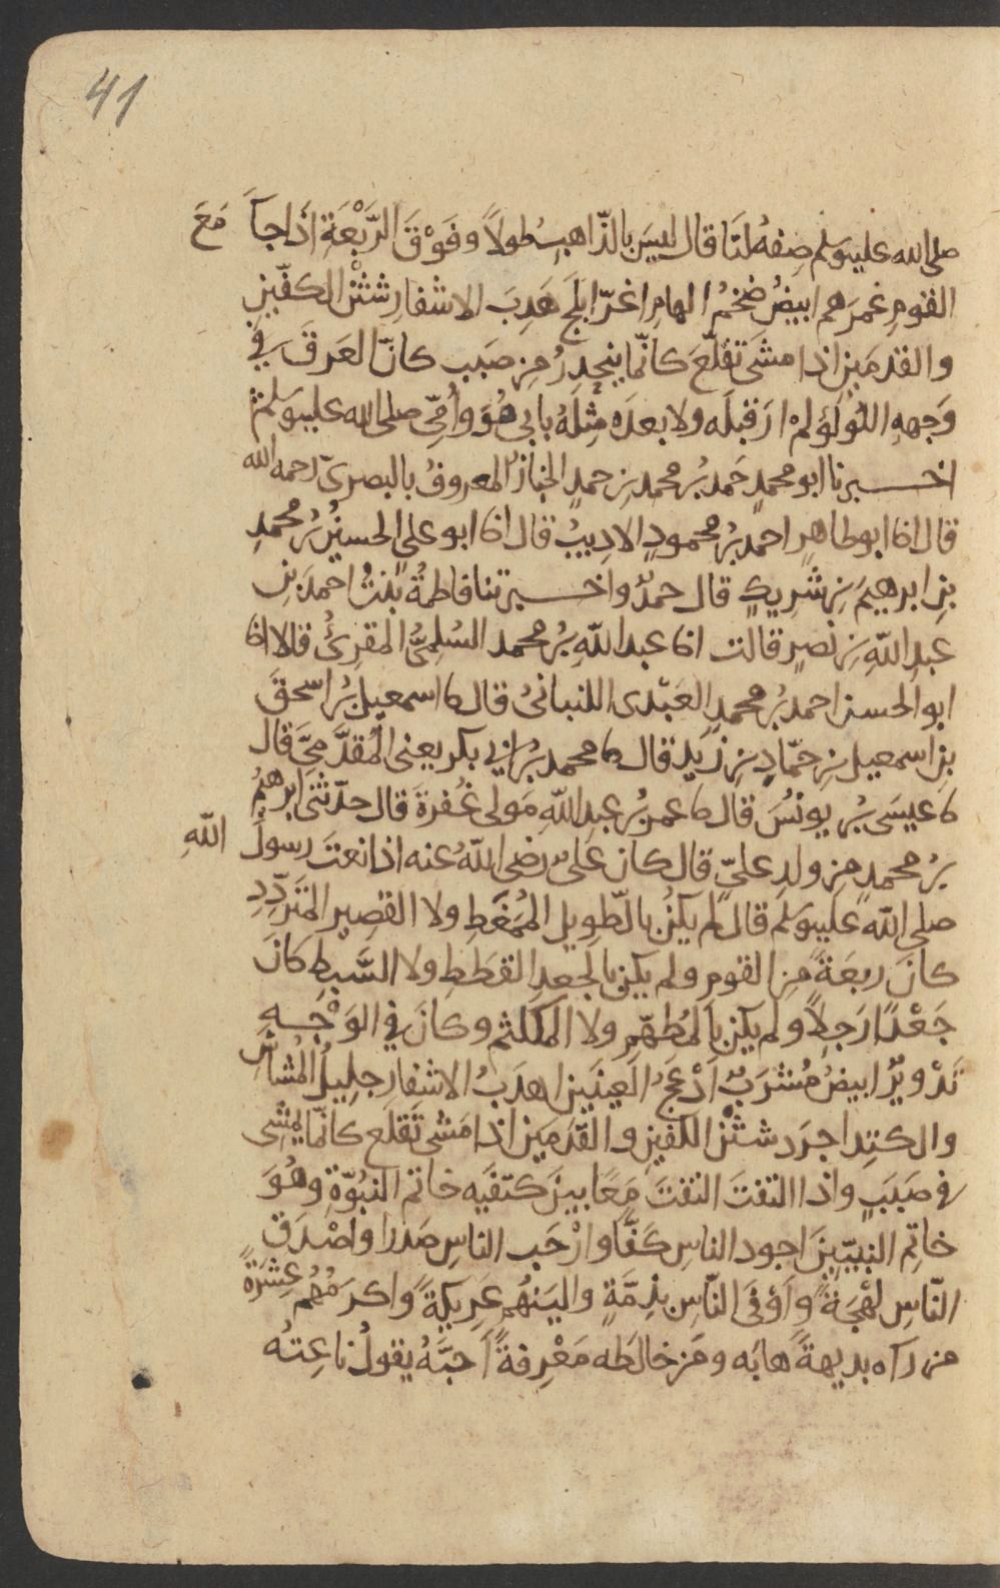 41
صلى الله عليه وسلم صِفهُ لنَا قال ليسَ بالذّاهبِ طولاً وفَوْقَ الرَّبْعَةِ اذا جآءَ مَعَ
القومِ غمرَهم ابيضُ ضخمُ الهامِ اغرّ ابلَج هَدِبَ الاشفارِ شثْن الكفّينِ
والقدمَينِ اذا مشَى تقلّعَ كانّما ينحدِرُ من صَبب كانّ العَرقَ في
وَجههِ اللُّولُؤ لم ارَ قبلَه ولا بعدَه مِثلَهُ بابي هُوَ وأُمّي صلى الله عليه وسلم
اخبرنا ابو محمدٍ حَمد بنُ محمد بن حمدٍ الخبازُ المعروفُ بالبصريّ رحمه الله
قال انا ابو طاهرٍ احمد بنُ محمودٍ الاديبُ قال انا ابو علي الحسينُ بنُ محمدِ
بنِ ابرهيمَ بن شَرِيكٍ قال حمدٌ واخبرتنا فاطمةُ بنتُ احمدَ بنِ
عبدِ اللّهِ بن نصرٍ قالت انا عبد اللّهِ بنُ محمد السُلِميُّ المقرِئُ قالا انا
ابو الحسن احمد بنُ محمدٍ العَبْدى اللنبانىُ قال نا اسمعيل بنُ اسحقَ
بنِ اسمعيل بنِ حمّادِ بنِ زيد قال نا محمد بنُ ابي بكر يعنى المُقدَّمِيَّ قال
نا عيسَى بنُ يونُسَ قال نا عمر بنُ عبدِ اللّهِ مَولى غُفرةَ قال حدّثنى ابرهيمُ
بنُ محمدٍ من ولدِ عليّ قال كان علىٌّ رضى اللّهُ عنه اذا نعتَ رسولَ اللّهِ
صلى اللّه عليه وسلم قال لم يكنْ بالطّويل المُمَّغِطِ ولا القصِيرِ المتردِّدِ
كانَ ربعَةً من القومِ ولم يكن بالجعدِ القطَطِ ولا السَّبْطِ كانَ
جَعْدًا رَجِلاً ولم يكن بالمُطهَّمِ ولا المكلثم وكانَ في الوَجْهِ
تَدْويرٌ ابيضُ مُشرَبٌ اَدْعجُ العينَينِ اهدَبُ الاشفارِ جلِيلُ المُشاشِ
والكتِد اجرَد شثْن الكفينِ والقَدمَينِ اذا مَشى تقلَع كانّما يمشى
في صَبَبٍ واذا التفتَ التفتَ مَعًا بينَ كتفَيه خاتم النبُوّةِ وهُوَ
خاتِم النبيّينَ اجود الناسِ كَفًّا وارْحَب الناسِ صَدرا واصْدَق
النّاسِ لهْجَةً واَوْفَى النّاسِ بذِمَّةٍ واليَنهُم عَرِيكةً واكرمُهُم عِشرَةً
من رآه بديهةً هابَه ومَن خالطَه مَعْرِفةً اَحبَّهُ يقولُ ناعِتهُ